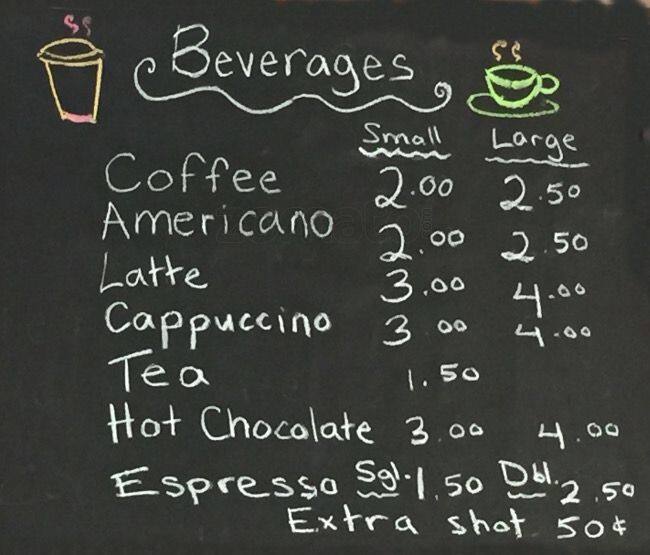 Beverages
Small Large
Coffee 2.00 2.50
Americano 2.00 2.50
Latte 3.00 4.00
Cappuccino 3.00 4.00
Tea 1.50
Hot Chocolate 3.00 4.00
Espresso Sgl. 1.50 Dbl. 2.50
Extra shot 50¢